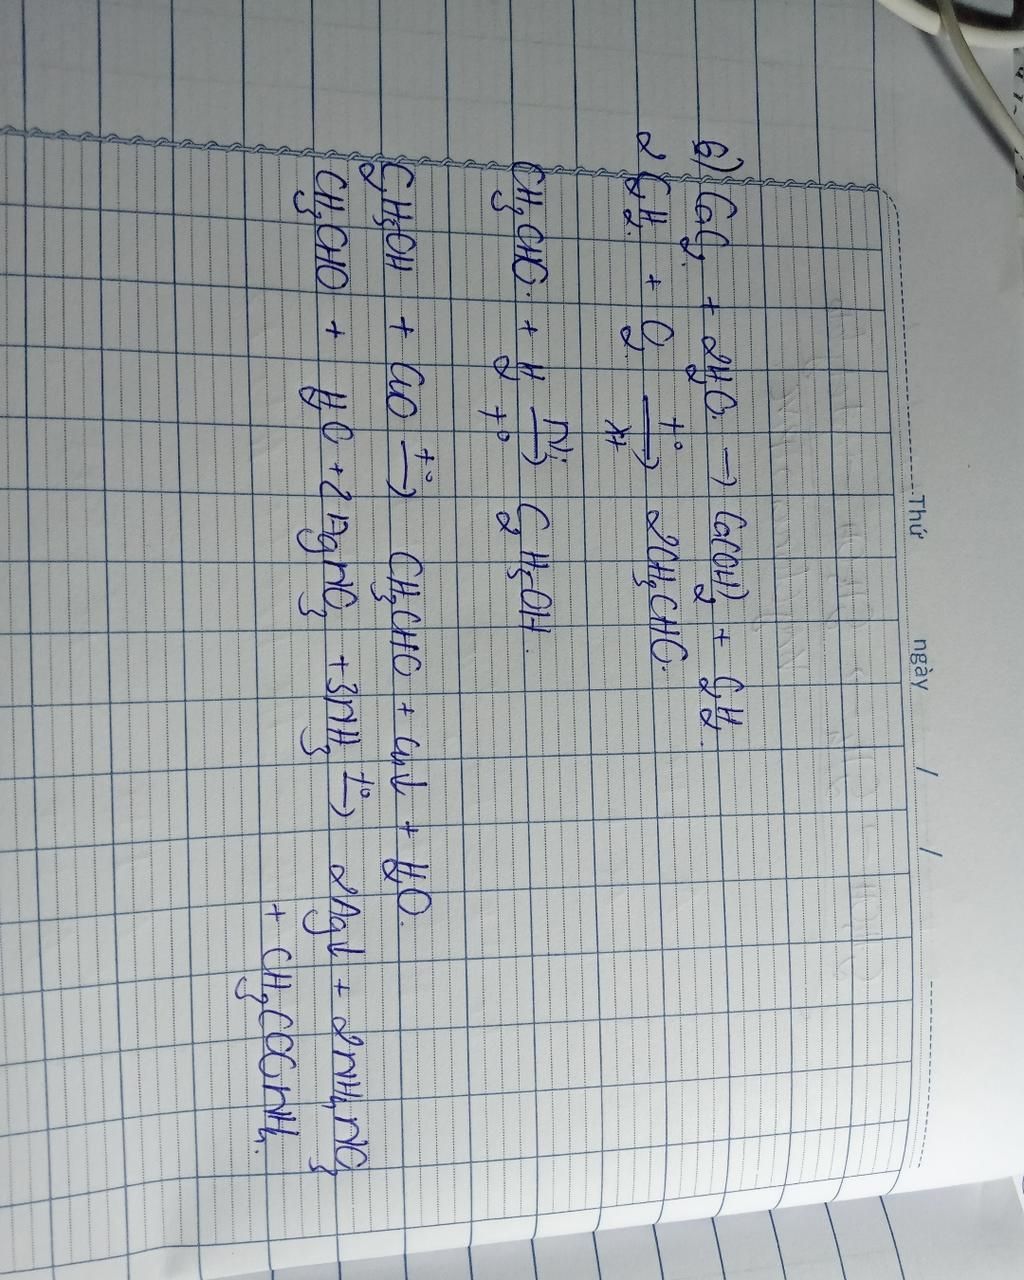 Thứ ngày / /
6) CaC₂ + 2H₂O → Ca(OH)₂ + C₂H₂.
2C₂H₂ + O₂ →(t°, xt) 2CH₃CHO.
CH₃CHO + H₂ →(Ni, t°) C₂H₅OH.
C₂H₅OH + CuO →(t°) CH₃CHO + Cu↓ + H₂O.
CH₃CHO + H₂O + 2AgNO₃ + 3NH₃ →(t°) 2Ag↓ + 2NH₄NO₃
+ CH₃COONH₄.